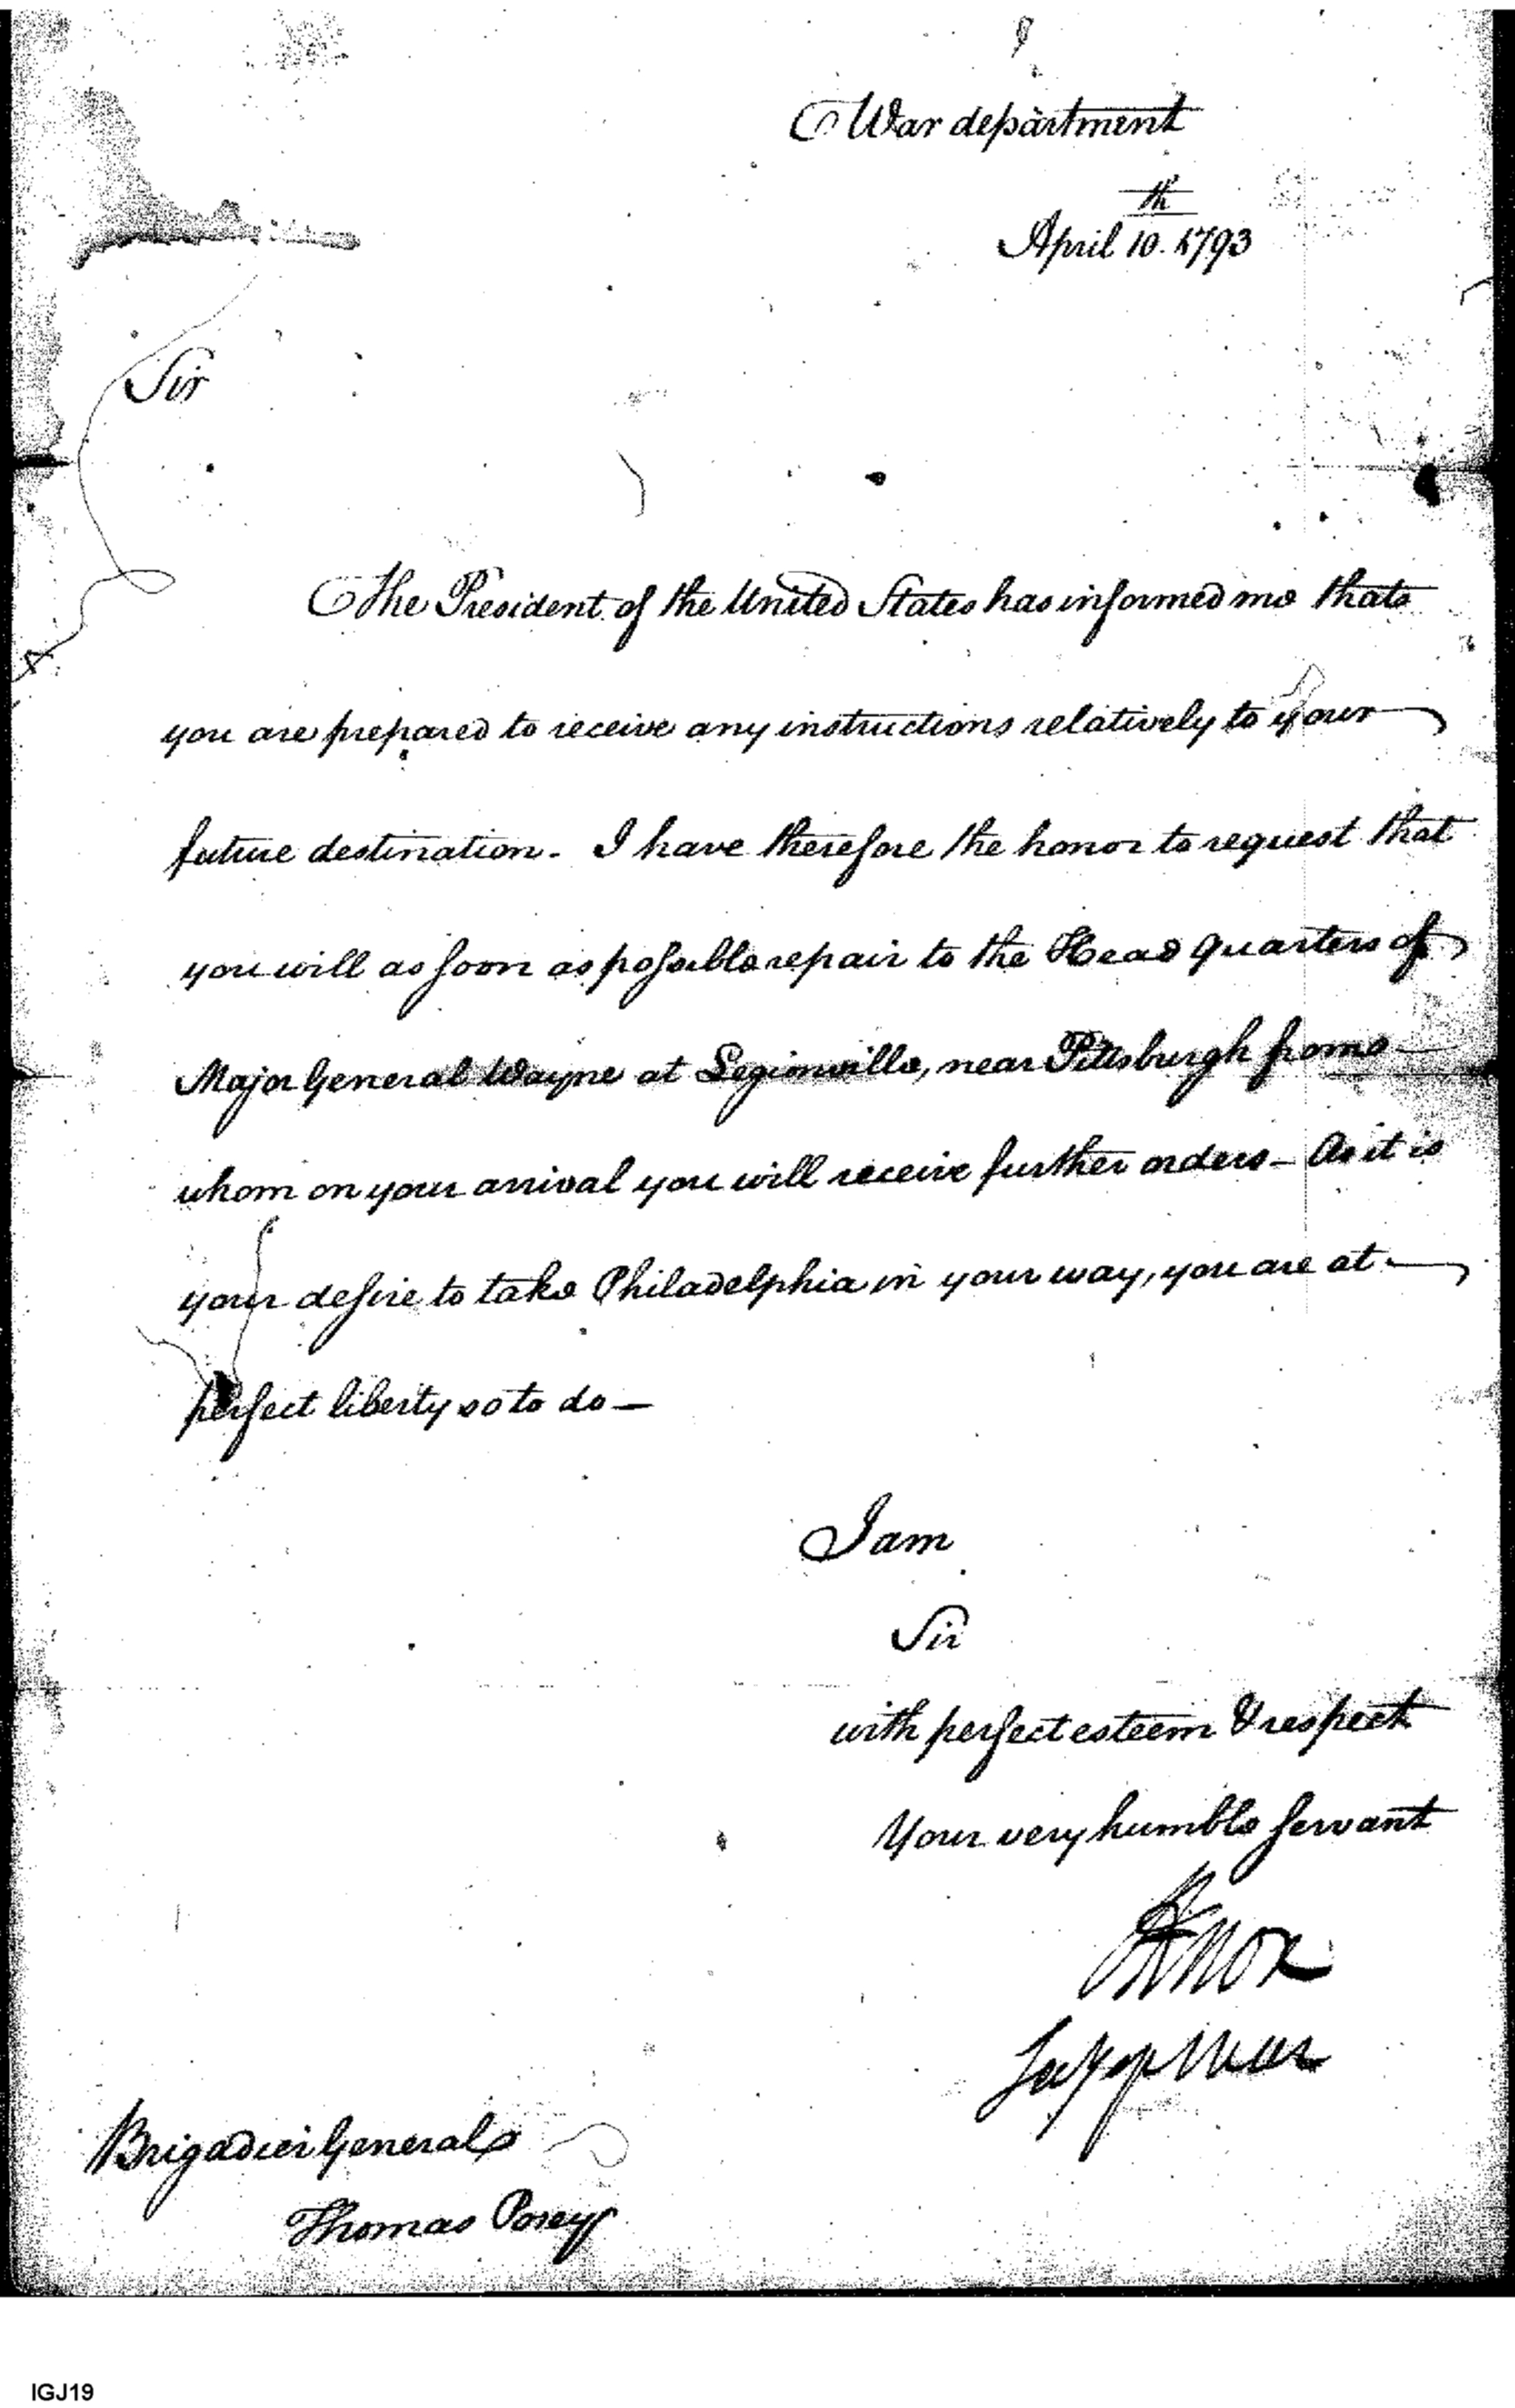 War department
April 10.th 1793
Sir
The President of the United States has informed me that
you are prepared to receive any instructions relatively to your
future destination. I have therefore the honor to request that
you will as soon as possible repair to the Head quarters of
Major General Wayne at Legionville, near Pittsburgh from
whom on your arrival you will receive further orders – As it is
your desire to take Philadelphia in your way, you are at
perfect liberty so to do —
I am
Sir
with perfect esteem & respect
Your very humble servant
HKnox
Secy of War
Brigadier General
Thomas Posey
IGJ19